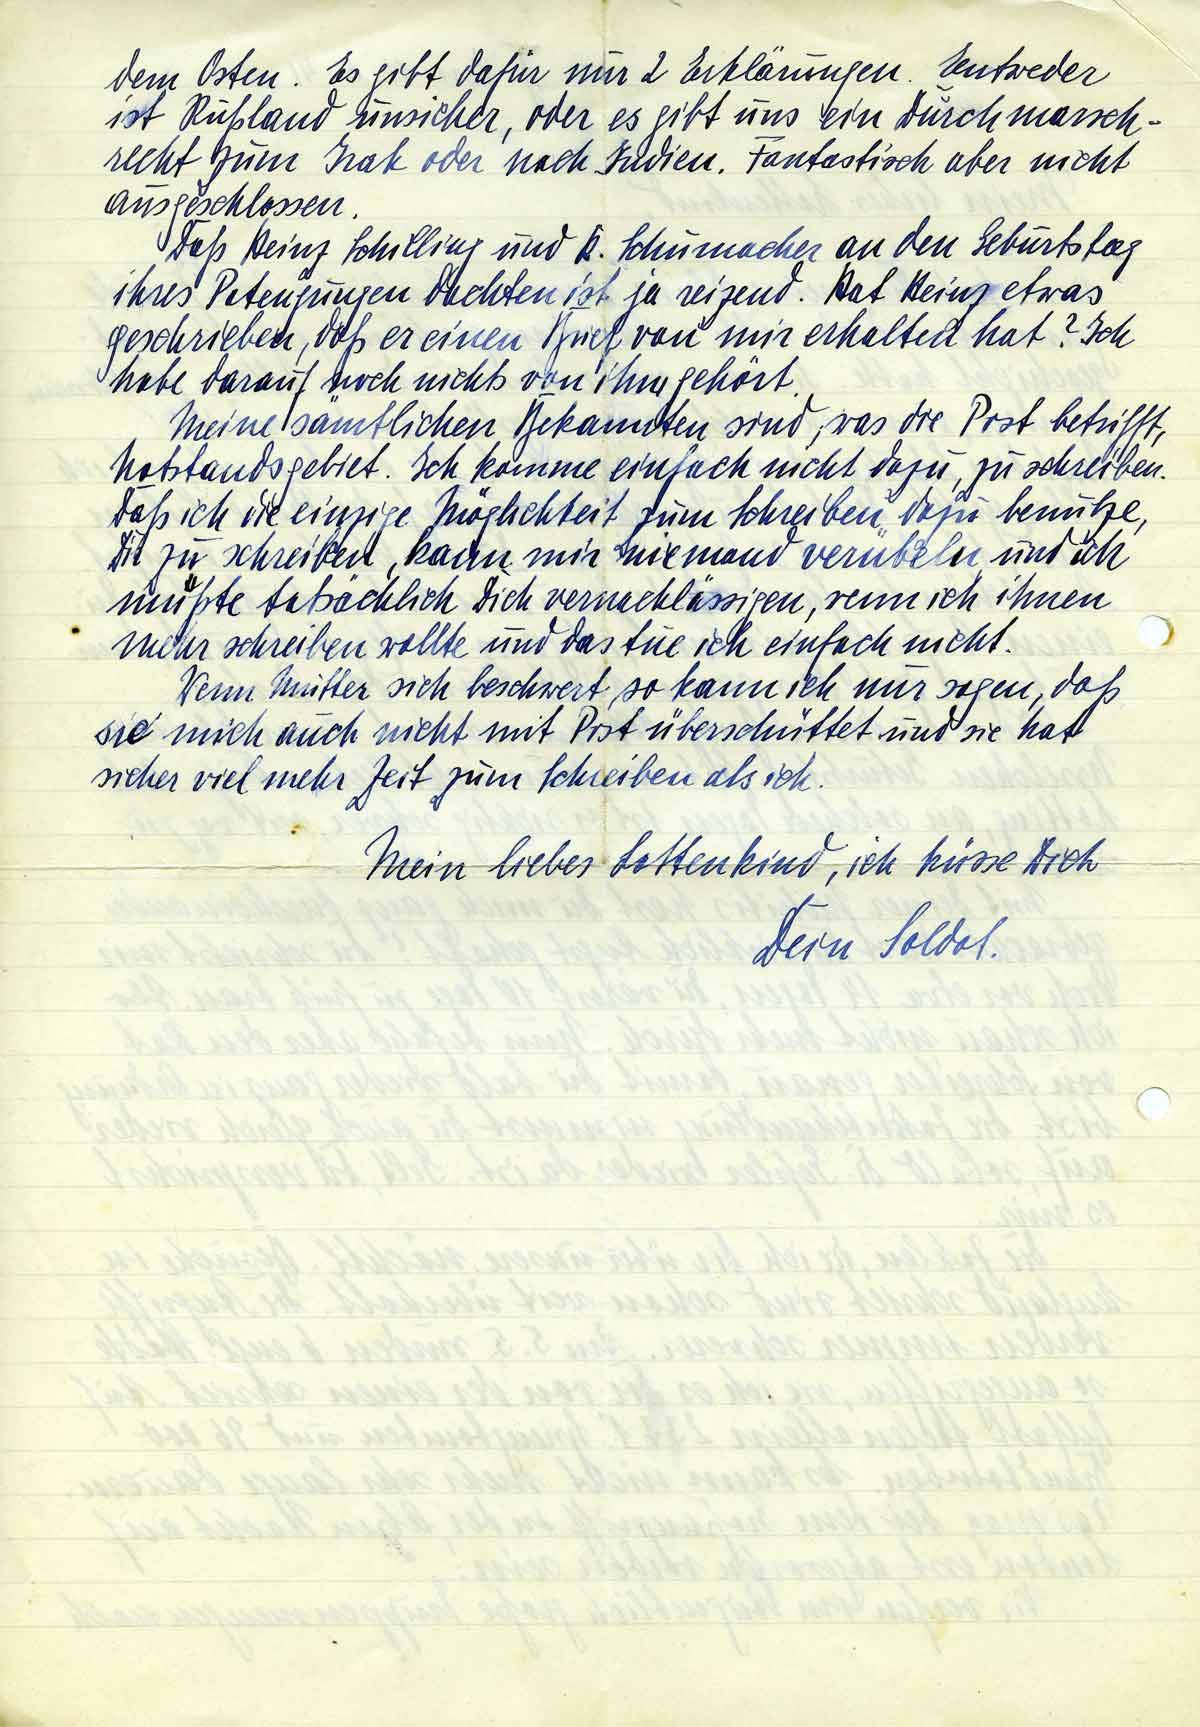 dem Osten. Es gibt dafür nur 2 Erklärungen. Entweder
ist Rußland unsicher, oder es gibt uns ein Durchmarsch-
recht zum Irak oder nach Indien. Fantastisch aber nicht
ausgeschlossen.
Daß Heinz Schilling und H. Schumacher an den Geburtstag
ihres Patenjungen dachten ist ja reizend. Hat Heinz etwas
geschrieben, daß er einen Brief von mir erhalten hat? Ich
habe darauf noch nichts von ihm gehört.
Meine sämtlichen Bekannten sind, was die Post betrifft,
Notstandsgebiet. Ich komme einfach nicht dazu, zu schreiben.
Daß ich die einzige Möglichkeit zum Schreiben dazu benutze,
Dir zu schreiben, kann mir niemand verübeln und ich
müßte tatsächlich Dich vernachlässigen, wenn ich ihnen
mehr schreiben wollte und das tue ich einfach nicht.
Wenn Mutter sich beschwert, so kann ich nur sagen, daß
sie mich auch nicht mit Post überschüttet und sie hat
sicher viel mehr Zeit zum Schreiben als ich.
Mein liebes Lottenkind, ich küsse Dich
Dein Soldat.